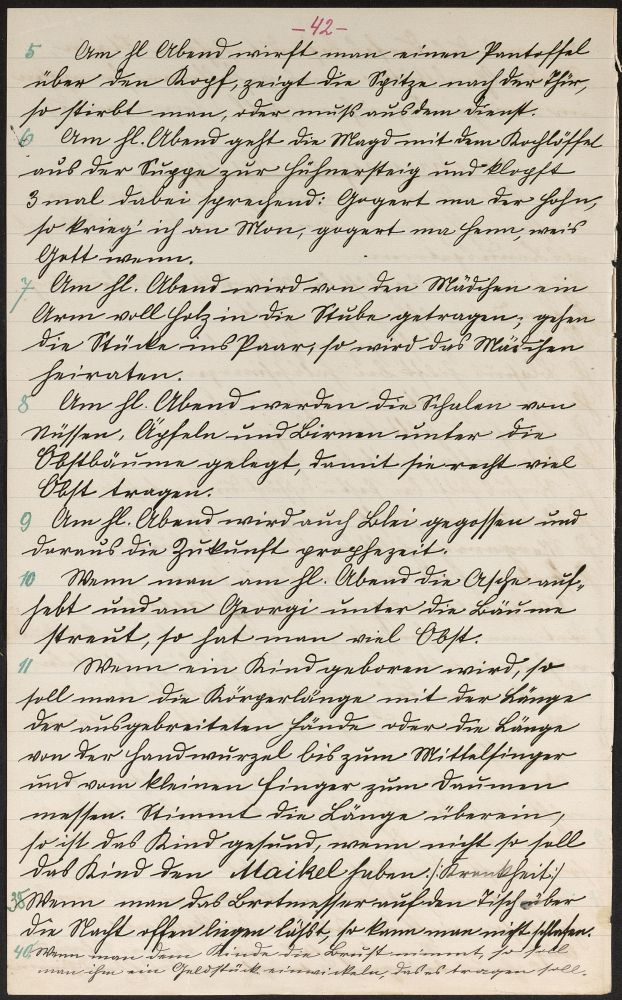 -42-
5 Am hl Abend wirft man einen Pantoffel
über den Kopf, zeigt die Spitze nach der Thür,
so stirbt man, oder muß aus dem Dienst.
6 Am hl. Abend geht die Magd mit dem Kochlöffel
aus der Suppe zur Hühnersteig und klopft
3 mal dabei sprechend: Gogert ma der Hohn,
so krieg' ich an Mon, gogert ma Henn, weis
Gott wenn.
7 Am hl. Abend wird von den Mädchen ein
Arm voll Holz in die Stube getragen; gehen
die Stücke ins Paar, so wird das Mädchen
heiraten.
8 Am hl. Abend werden die Schalen von
Nüssen, Äpfeln und Birnen unter die
Obstbäume gelegt, damit sie recht viel
Obst tragen.
9 Am hl. Abend wird auch Blei gegossen und
daraus die Zukunft prophezeit.
10 Wenn man am hl. Abend die Asche auf„
hebt und am Georgi unter die Bäume
streut, so hat man viel Obst.
11 Wenn ein Kind geboren wird, so
soll man die Körperlänge mit der Länge
der ausgebreiteten Hände oder die Länge
von der Handwurzel bis zum Mittelfinger
und vom kleinen Finger zum Daumen
messen. Stimmt die Länge überein,
so ist das Kind gesund, wenn nicht so soll
das Kind den Maikel haben. /:Krankheit:/
38 Wenn man das Brotmesser auf den Tisch über
die Nacht offen liegen läßt, so kann man nicht schlafen.
40. Wenn man dem Kinde die Brust nimmt, so soll
man ihm ein Geldstück einwickeln, das es tragen soll.